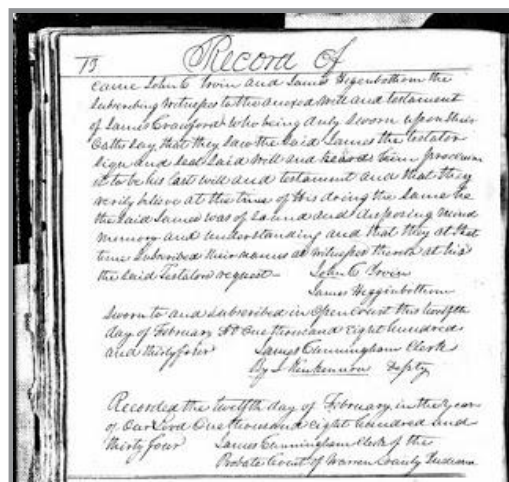 13 Record of
came John C Irvin and James Higenbothom the
Subscribing Witnesses to the anexed Will and testament
of James Crawford who being duly Sworn upon their
Oaths Say that they Saw the Said James the testator
Sign and Seal Said Will and heard him pronounce
it to be his last will and testament and that they
verily believe at the time of his doing the Same he
the Said James was of Sound and disposing mind
memory and understanding and that they at that
time Subscribed their names as Witnesses thereto at his
the Said Testators request— John C Irvin
James Higginbothom
Sworn to and Subscribed in Open Court this twelfth
day of February AD One thousand Eight hundred
and thirty four James Cunningham Clerk
By J Depty
Recorded the twelfth day of February in the Year
of Our Lord One thousand Eight hundred and
thirty four James Cunningham Clerk of the
Probate Court of Warren County Indiana